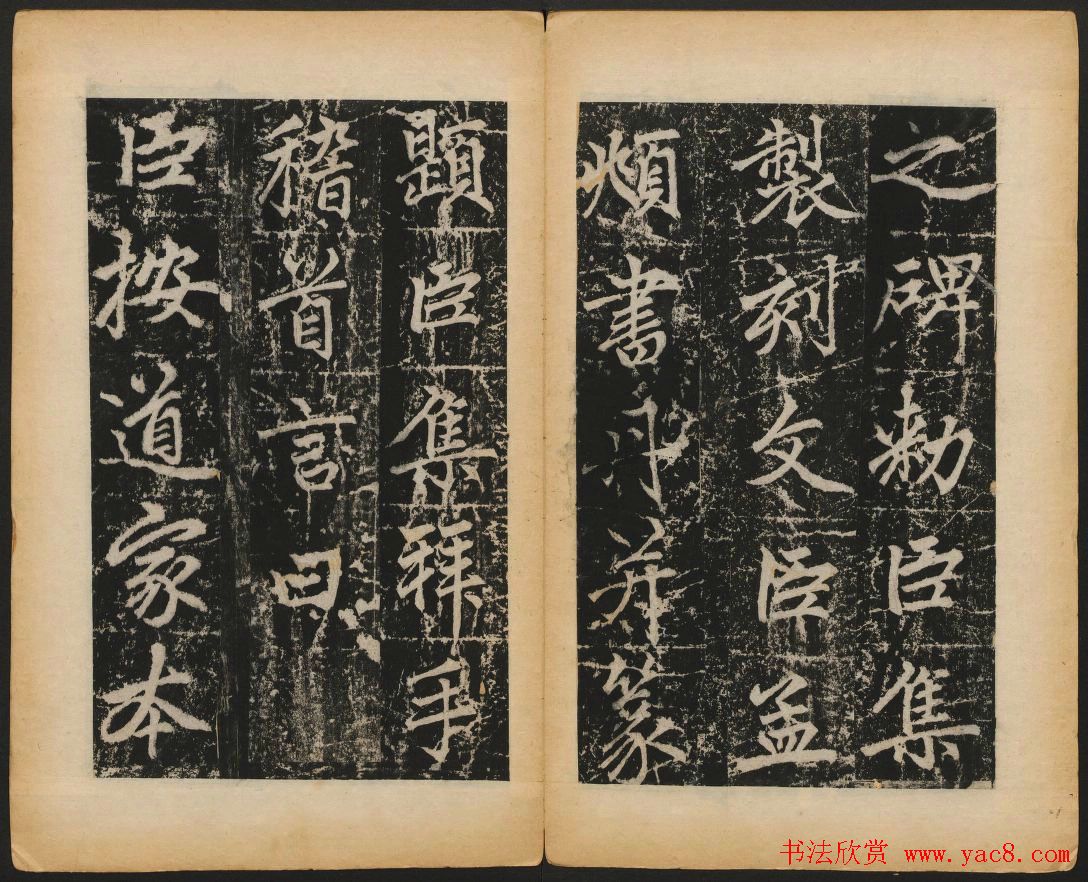 之碑勑臣集
製刻文臣孟
頫書丹并篆
題臣集拜手
稽首言曰
臣按道家本
书法欣赏 www.yac8.com